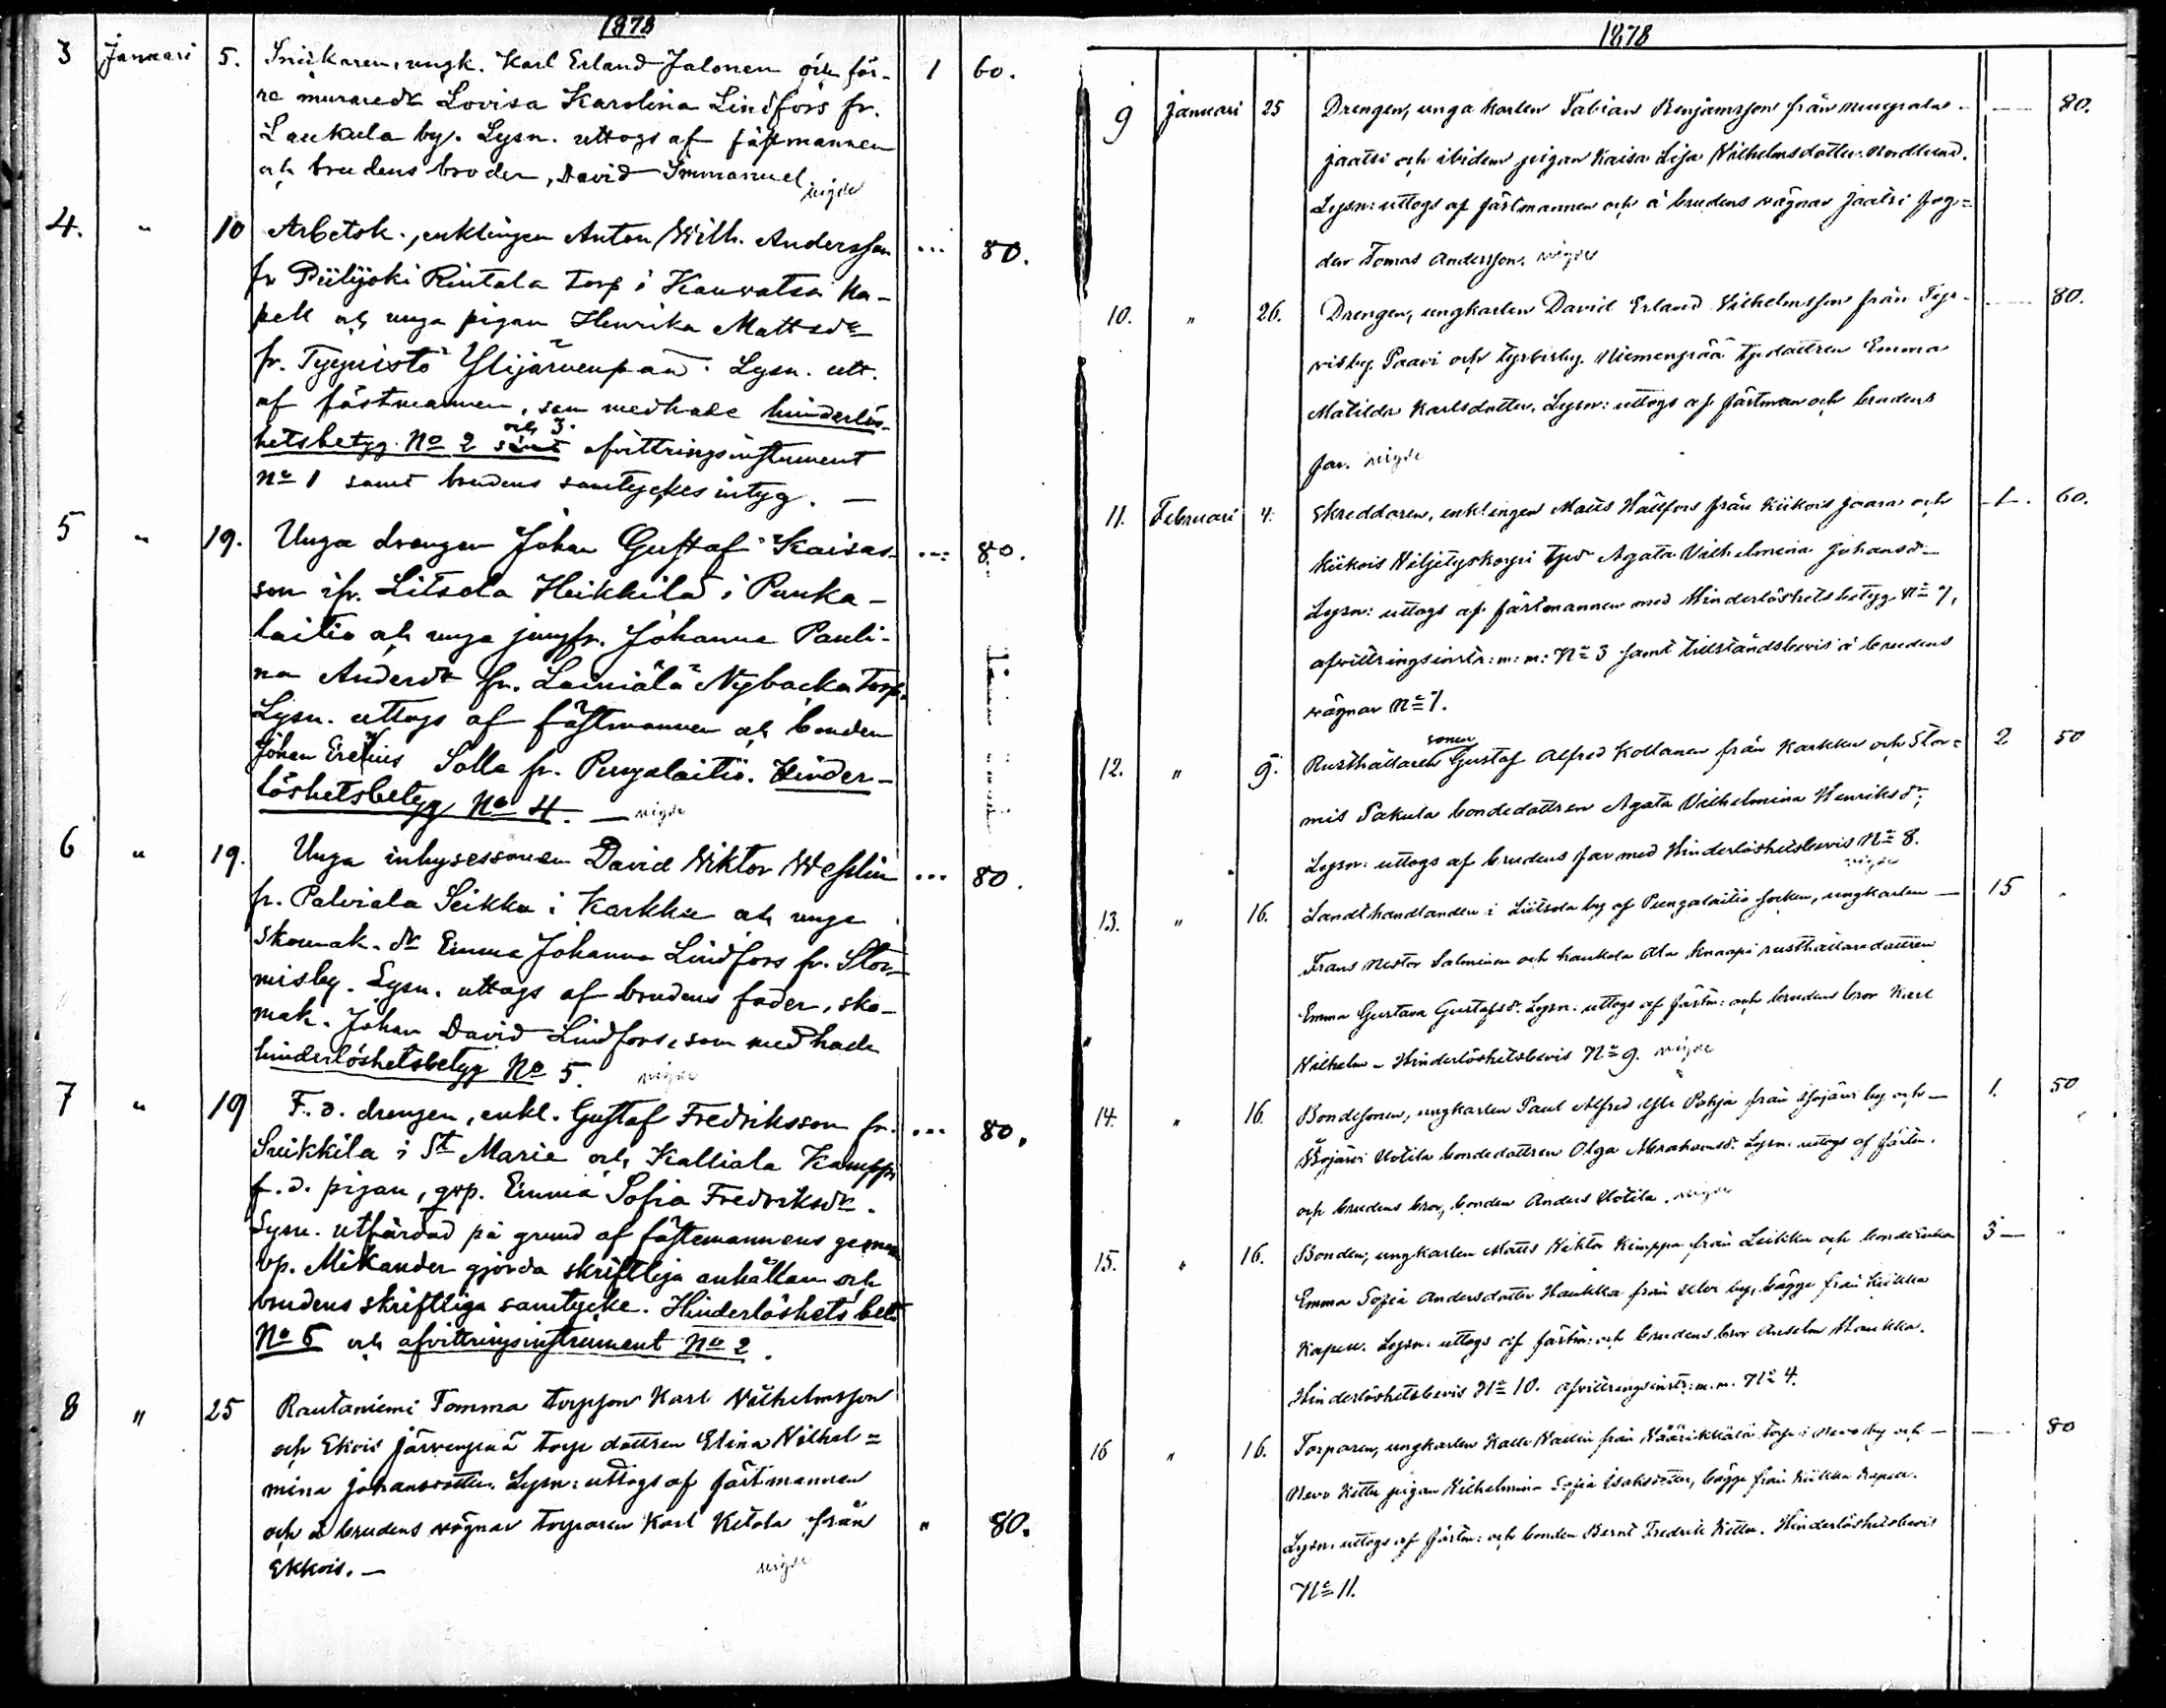 1878
3 Januari 5. Snickaren, ungk. Karl Erland Jalonen och för- 1 60.
re muraredr Lovisa Karolina Lindfors fr.
Laukula by. Lysn. uttogs af fästmannen
och brudens broder, David Immanuel vigde
4. " 10 Arbetsk., enklingen Anton Wilh. Andersson ... 80.
fr Piilijoki Rintala torp i Kauvatsa ka-
pell och unga pigan Henrika Mattsdr
fr. Tyypistö Ylijärvenpää. Lysn. utt.
af fästmannen, som medhade hinderlös-
hetsbetyg No 2 och 3. samt afvittringsinstrument
No 1 samt brudens samtyckes intyg. —
5 " 19. Unga drengen Johan Gustaf Kaisas- ... 80.
son ifr. Litsola Heikkilä i Punka-
laitio och unga jungfr. Johanna Pauli-
na Andersdr fr. Lainiälä Nybacka torp.
Lysn. uttogs af fästmannen och bonden
Johan Erenius Solla fr. Pungalaitio. Hinder-
löshetsbetyg No 4. — vigde
6 " 19. Unga inhysessonen David Wiktor Wesslin ... 80.
fr. Palviala Seikka i Karkku och unga
skomak. dr Emma Johanna Lindfors fr. Stor-
misby. Lysn. uttogs af brudens fader, sko-
mak. Johan David Lindfors, som medhade
hinderlöshetsbetyg No 5. vigde
7 " 19 F. d. drengen, enkl. Gustaf Fredriksson fr. ... 80.
Suikkila i St Marie och Kalliala Kamppi
f. d. pigan, Emma Sofia Fredriksdr.
Lysn. utfärdad på grund af fästemannens genom
vp. Mikander gjorda skriftliga anhållan och
brudens skriftliga samtycke. Hinderlöshets bet.
No 6 och afvittringsinstrument No 2.
8 " 25 Rautaniemi Tomma torpson Karl Vilhelmsson
och Ekois Järvenpää torpdottren Elina Vilhel=
mina Johansdotter. Lysn: uttogs af fästmannen
och å brudens vägnar torparen Karl Ketola från " 80.
Ekkois. — vigde
1878
9 januari 25 Drengen, unga karlen Fabian Benjamsson från — 80.
jaatsi och ibidem pigan Kaisa Lisa Vilhelmsdotter Nordlund.
Lysn: uttogs af fästmannen och å brudens vägnar Jaatsi fog=
den Tomas Andersson. vigde
10. " 26. Drengen, ungkarlen David Erland Vilhelmsson från Tyr- — 80.
visby Paavi och Tyrvisby Niemenpää tpdottren Emma
Matilda Karlsdotter. Lysn: uttogs af fästman och brudens
far. vigde
11. Februari 4. Skreddaren, enklingen Matts Hällfors från Kiikois Jaara och 1. 60.
Kiikois Viljetyskorpi tpdr Agata Vilhelmina Johansdr
Lysn: uttogs af fästmannen med Hinderlöshetsbetyg No 7,
afvittringsinstr: m: m: No 3 samt tillståndsbevis å brudens
vägnar No 1.
12. " 9. Rusthållaresonen Gustaf Alfred Kollanen från Karkku och Stor= 2 50
mis Pakula bondedottren Agata Vilhelmina Henriksdr;
Lysn: uttogs af brudens far med Hinderlöshetsbevis No 8.
vigde
13. " 16. Landthandlanden i Liitsola by af Pungalaitio socken, ungkarlen — 15 "
Frans Nestor Salminen och Kaukola Ala Knaapi rusthållaredottren
Emma Gustava Gustafsdr. Lysn: uttogs af fästm: och brudens bror Karl
Vilhelm - Hinderlöshetsbevis No 9. vigde
14. " 16. Bondesonen, ungkarlen Paul Alfred Yli Pohja från Illojärvi by och — 1. 50
Illojärvi Uotila bondedottren Olga Abrahamsdr. Lysn: uttogs af fästm.
och brudens bror, bonden Anders Uotila. vigde
15. " 16. Bonden, ungkarlen Matts Viktor Kimppa från Leikku och 3 — "
Emma Sofia Andersdotter Haukka från by, bägge från Kiikka
Kapell. Lysn: uttogs af fästm: och brudens bror Anselm Haukka.
Hinderlöshetsbevis No 10. afvittringsinstr: m. m. No 4.
16 " 16. Torparen, ungkarlen Kalle Vallin från Väärikkälä torp i Nevo by och — 80
Nevo Kettu pigan Vilhelmina Sofia Isaksdotter, bägge från Kiikka Kapell.
Lysn: uttogs af fästm: och bonden Bernt Fredrik Kettu. Hinderlöshetsbevis
No 11.